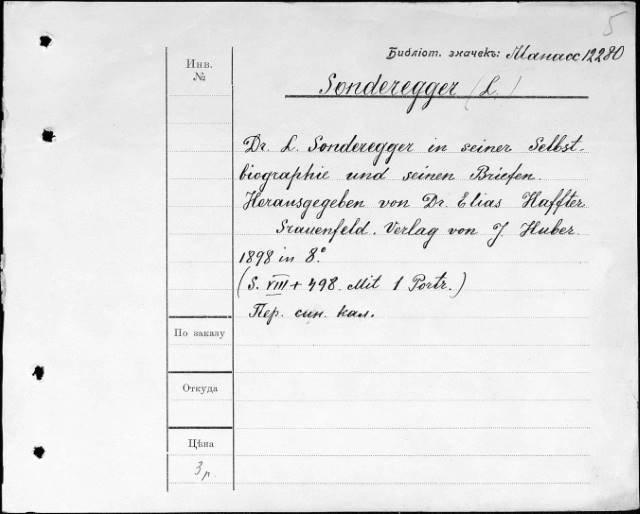 5
Библіот. значекъ: Манасс 12280
Инв.
№
Sonderegger (L.)
Dr. L. Sonderegger in seiner Selbst-
biographie und seinen Briefen.
Herausgegeben von Dr. Elias Haffter
Frauenfeld. Verlag von J. Huber.
1898 in 8°
(S. VIII + 498. Mit 1 Portr.)
Пер. син. кал.
По заказу
Откуда
Цѣна
3 р.